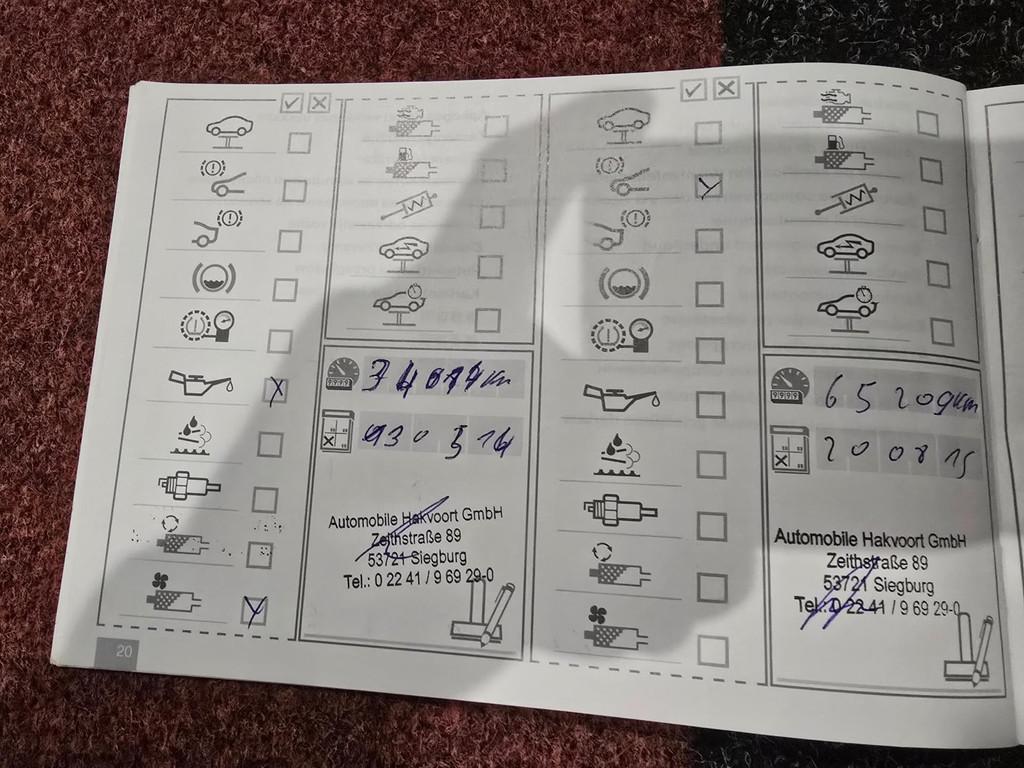 65209km
200815
Automobile Hakvoort GmbH
Zeithstraße 89
53721 Siegburg
Tel.: 0 22 41 / 9 69 29-0
Automobile Hakvoort GmbH
Zeithstraße 89
53721 Siegburg
Tel.: 0 22 41 / 9 69 29-0
20